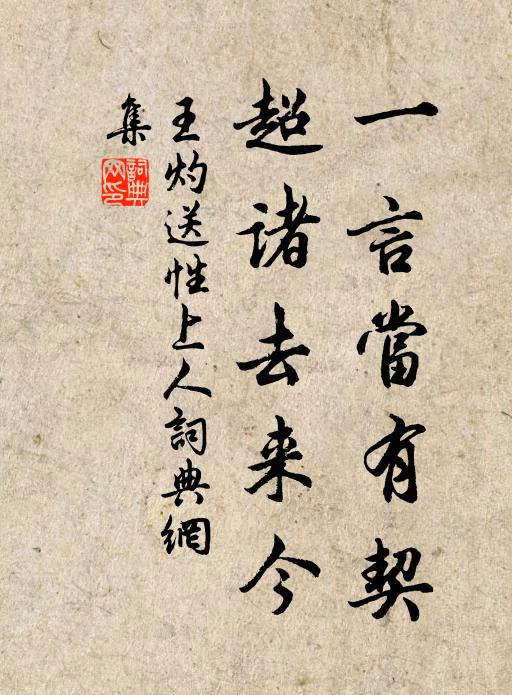 一言當有契
超諸去来今
王灼送性上人詞典網
集
詞典網印